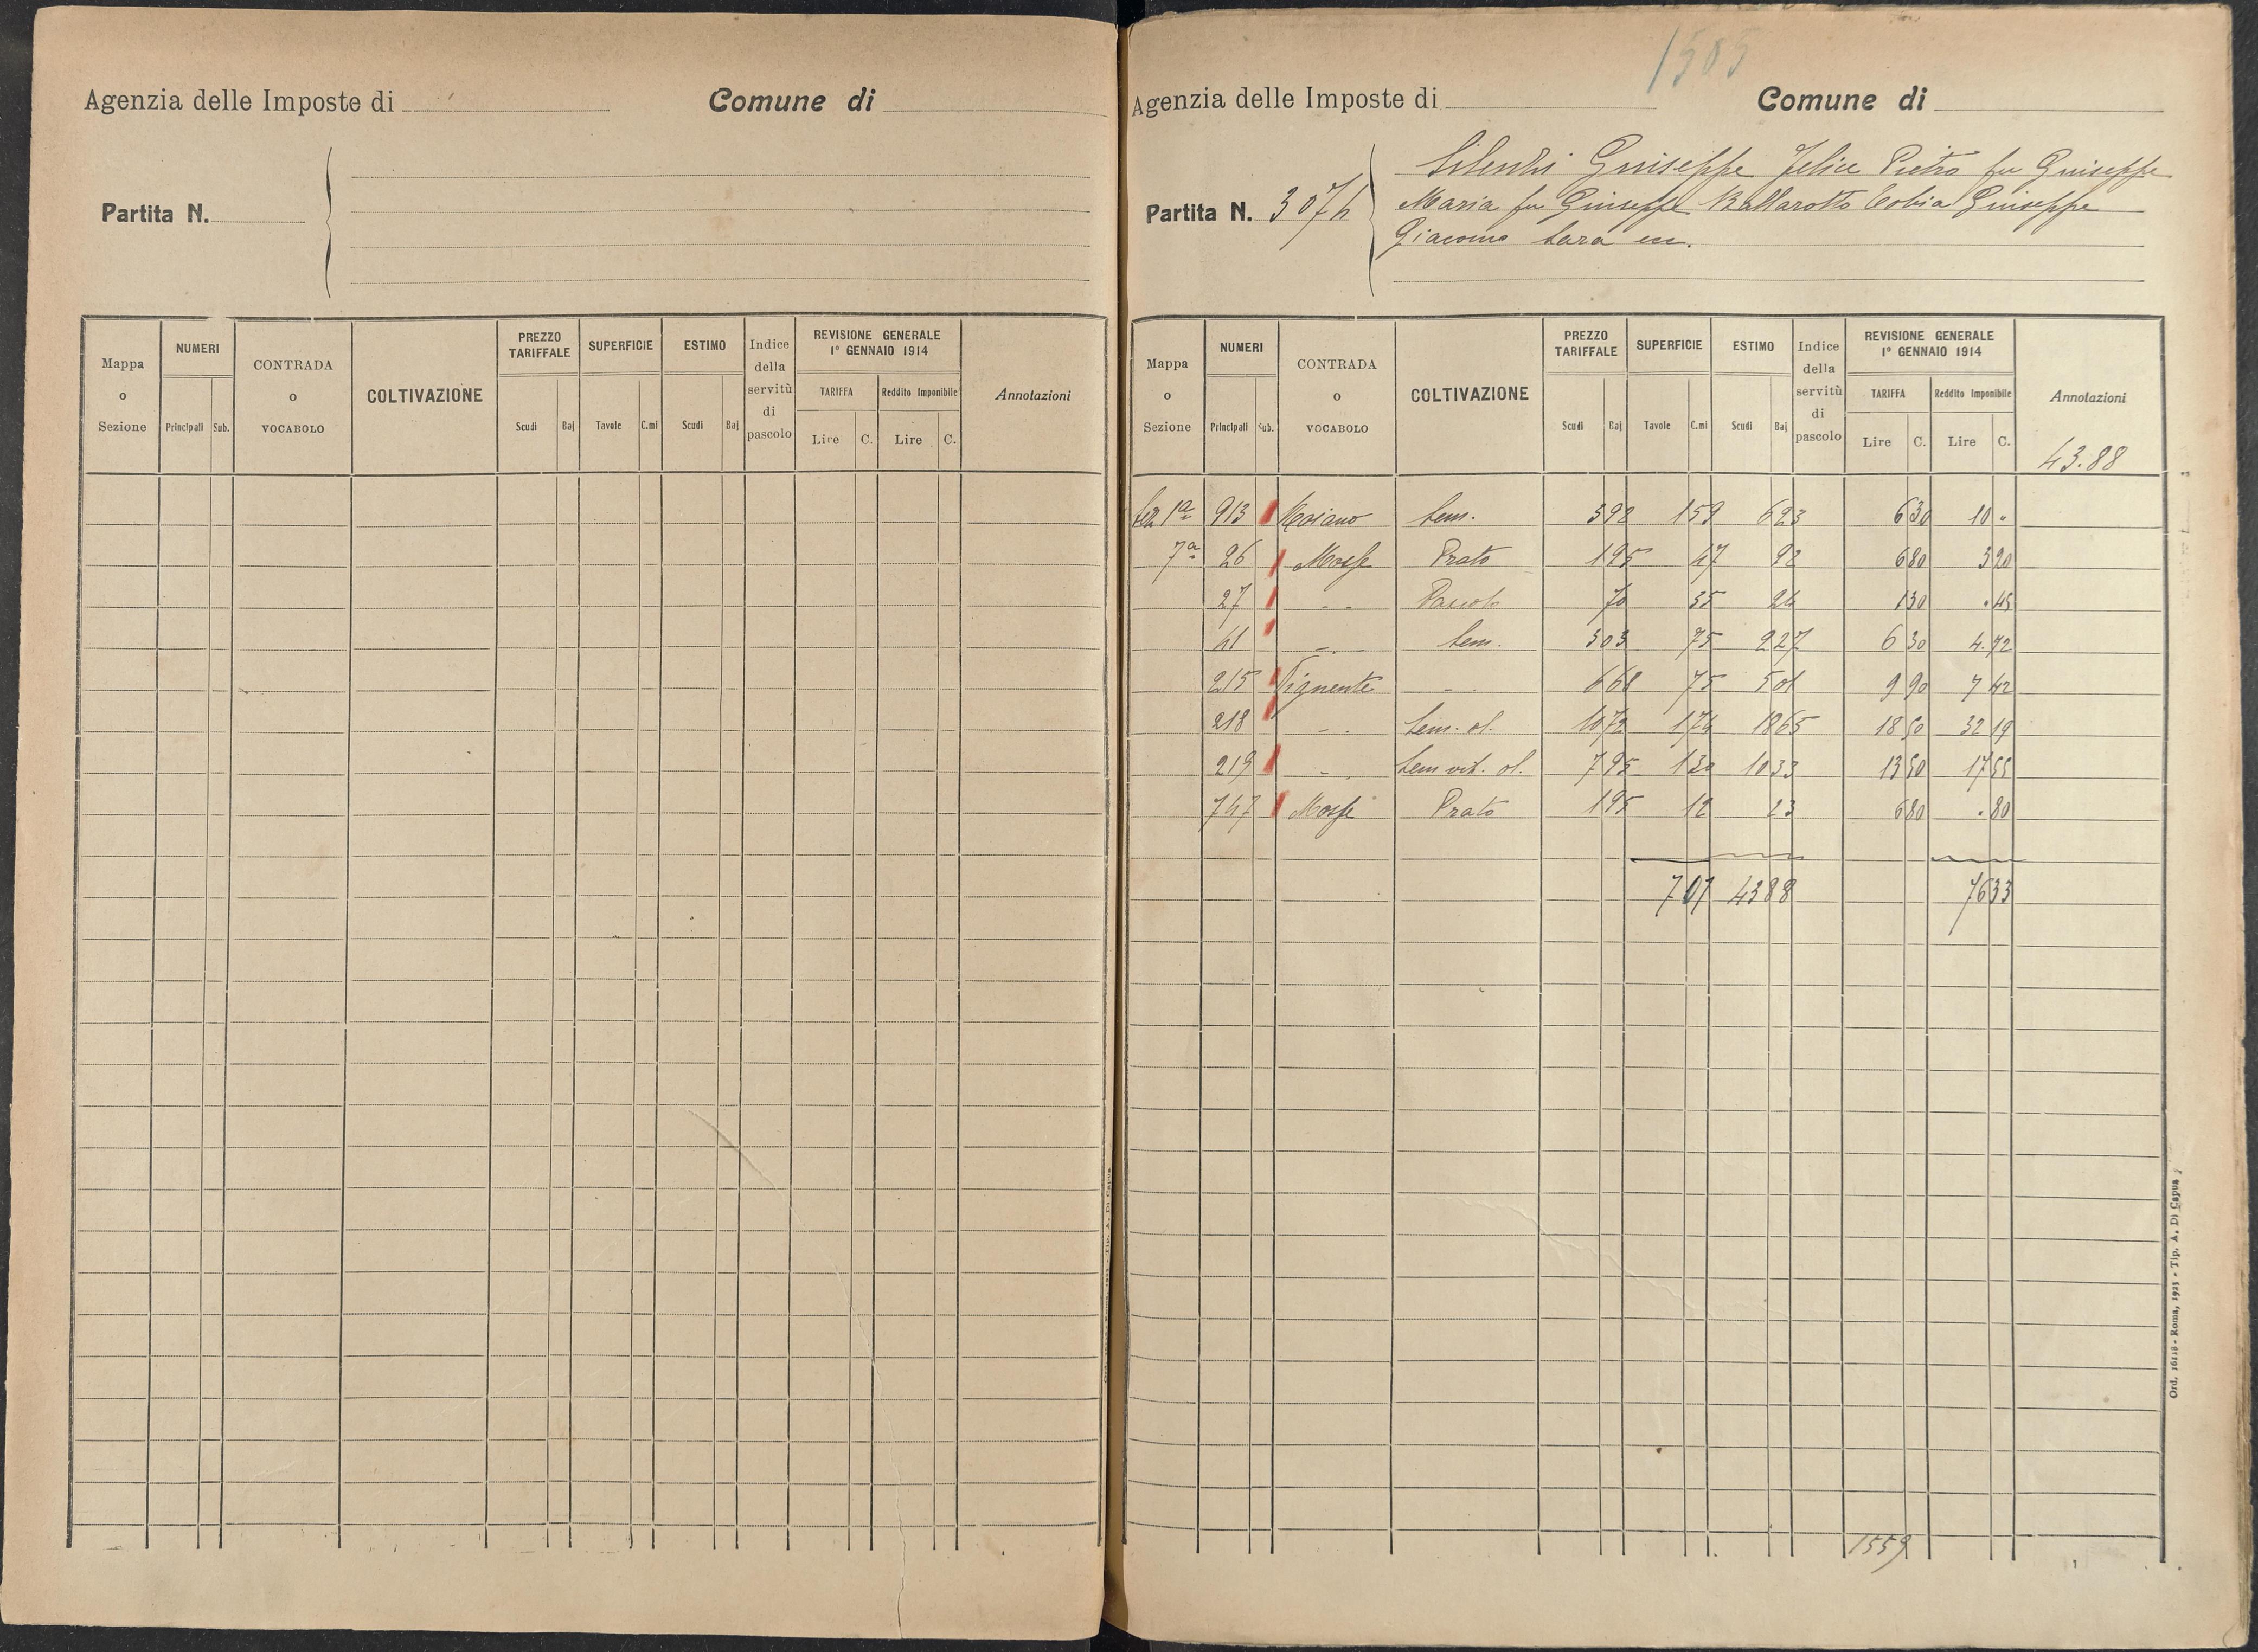 Agenzia delle Imposte di Comune di
Partita N.
Mappa o Sezione NUMERI Principali Sub. CONTRADA o VOCABOLO COLTIVAZIONE PREZZO TARIFFALE Scudi Baj SUPERFICIE Tavole C.mi ESTIMO Scudi Baj Indice della servitù di pascolo REVISIONE GENERALE 1° GENNAIO 1914 TARIFFA Lire C. Reddito Imponibile Lire C. Annotazioni
1505
Agenzia delle Imposte di Comune di
Giuseppe Felice Pietro fu Giuseppe
Partita N. 3074 Maria fu Giuseppe Ballarotto Tobia Giuseppe
Giacomo Sara
Mappa o Sezione NUMERI Principali Sub. CONTRADA o VOCABOLO COLTIVAZIONE PREZZO TARIFFALE Scudi Baj SUPERFICIE Tavole C.mi ESTIMO Scudi Baj Indice della servitù di pascolo REVISIONE GENERALE 1° GENNAIO 1914 TARIFFA Lire C. Reddito Imponibile Lire C. Annotazioni
43.88
Sez 1ª 913 Moiano Sem. 392 159 623 6 30 10 "
7ª 26 Prato 195 47 92 6 80 3 20
27 " " Pascolo 70 35 24 1 30 . 45
41 " " Sem. 303 75 227 6 30 4.72
215 Vignente " " 668 75 501 9 90 7 42
218 " " Sem. ol. 1072 174 1865 18 50 32 19
219 " " Sem vit. ol. 795 130 1033 13 50 17 55
747 Prato 195 12 23 6 80 . 80
7 07 43 88 76 33
1559
Ord. 16118 - Roma, 1923 - Tip. A. Di Capua